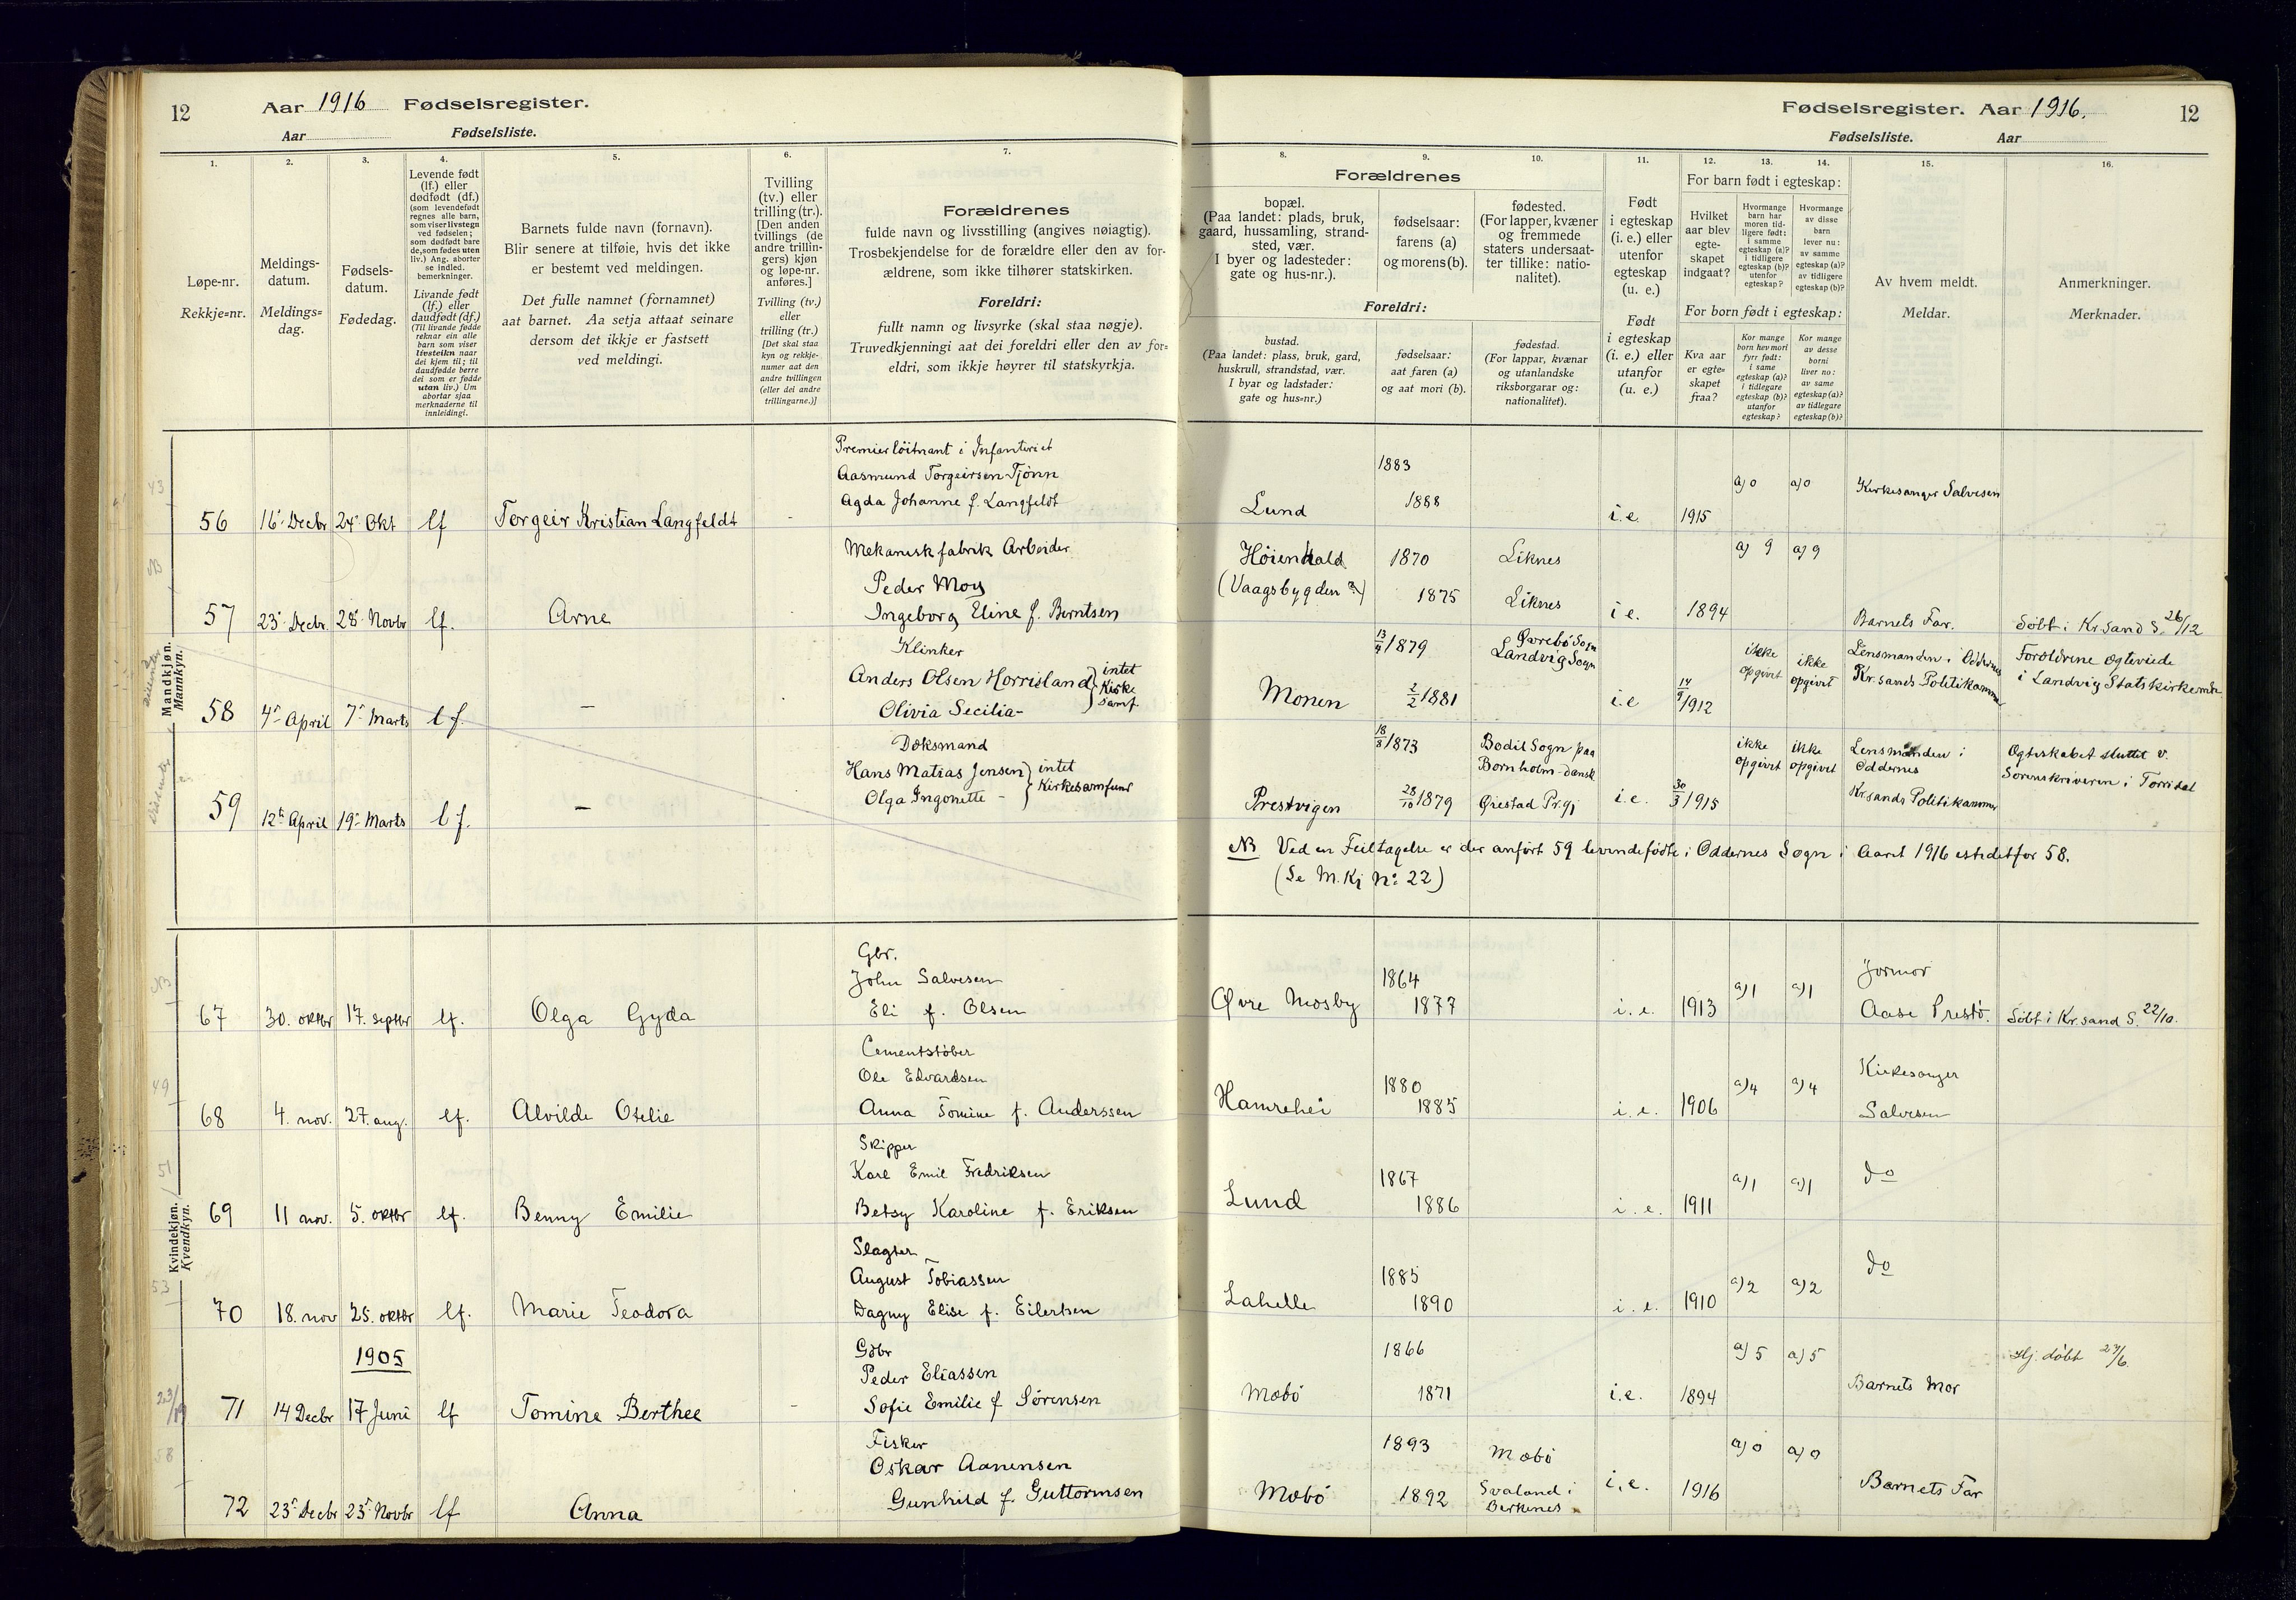 12
Aar 1916 Fødselsregister.
Aar Fødselsliste.
1.
2.
3.
4.
5.
6.
7.
Løpe-nr.
Rekkje=nr.
Meldings-
datum.
Meldings=
dag.
Fødsels-
datum.
Fødedag.
Levende født
(lf.) eller
dødfødt (df.)
(som levendefødt
regnes alle barn,
som viser livstegn
ved fødselen;
som dødfødt bare
de, som fødes uten
liv.) Ang. aborter
se indled.
bemerkninger.
Livande født
(lf.) eller
daudfødt (df.)
(Til livande fødde
reknar ein alle
barn som viser
livsteikn naar
dei kjem til; til
daudfødde berre
dei som er fødde
utan liv.) Um
abortar sjaa
merknaderne til
innleidingi.
Barnets fulde navn (fornavn).
Blir senere at tilføie, hvis det ikke
er bestemt ved meldingen.
Det fulle namnet (fornamnet)
aat barnet. Aa setja attaat seinare
dersom det ikkje er fastsett
ved meldingi.
Tvilling
(tv.) eller
trilling (tr.).
[Den anden
tvillings (de
andre trillin-
gers) kjøn
og løpe-nr.
anføres.]
Tvilling (tv.)
eller
trilling (tr.)
[Det skal staa
kyn og rekkje-
numer aat den
andre tvillingen
(eller dei andre
trillingarne.)]
Forældrenes
fulde navn og livsstilling (angives nøiagtig).
Trosbekjendelse for de forældre eller den av for-
ældrene, som ikke tilhører statskirken.
Foreldri:
fullt namn og livsyrke (skal staa nøgje).
Truvedkjenningi aat dei foreldri eller den av for=
eldri, som ikkje høyrer til statskyrkja.
Mandkjøn.
Mannkyn.
56 16 Decbr 24 Okt lf Torgeir Kristian Langfeldt
Premierløitnant i Infanteriet
Aasmund Torgeirsen Tjønn
Agda Johanne f. Langfeldt
57 23 Decbr. 28 Novbr lf. Arne
Mekanisk fabrik Arbeider
Peder Moy
Ingeborg Eline f. Berntsen
58 4 April 7 Marts lf. –
Klinker
Anders Olsen Horrisland
Olivia Secilia –
intet
Kirke
samf.
59 12 April 19 Marts lf. –
Doksmand
Hans Matias Jensen
Olga Ingonette –
intet
Kirkesamfund
Kvindekjøn.
Kvendkyn.
67 30. oktbr 17. septbr lf. Olga Gyda
Gbr.
John Salvesen
Eli f. Olsen
68 4. nov. 27. aug. lf. Alvilde Otelie
Cementstøber
Ole Edvardsen
Anna Tomine f. Anderssen
69 11 nov. 5. oktbr lf. Benny Emilie
Skipper
Karl Emil Fredriksen
Betsy Karoline f. Eriksen
70 18. nov 25. oktbr lf. Marie Teodora
Slagter
August Tobiassen
Dagny Elise f. Eilertsen
1905
71 14 Decbr 17 Juni lf Tomine Berthee
Gbr
Peder Eliassen
Sofie Emilie f Sørensen
72 23 Decbr 23 Novbr lf Anna
Fisker
Oskar Aanensen
Gunhild f. Guttormsen
Fødselsregister. Aar 1916. 12
Fødselsliste. Aar
8.
9.
10.
11.
12.
13.
14.
15.
16.
Forældrenes
bopæl.
(Paa landet: plads, bruk,
gaard, hussamling, strand-
sted, vær.
I byer og ladesteder:
gate og hus-nr.).
fødselsaar:
farens (a)
og morens (b).
fødested.
(For lapper, kvæner
og fremmede
staters undersaat-
ter tillike: natio-
nalitet).
Foreldri:
bustad.
(Paa landet: plass, bruk, gard,
huskrull, strandstad, vær.
I byar og ladstader:
gate og hus=nr.)
fødselsaar:
aat faren (a)
og aat mori (b).
fødestad.
(For lappar, kvænar
og utanlandske
riksborgarar og:
nationalitet).
Født
i egteskap
(i. e.) eller
utenfor
egteskap
(u. e.)
Født
i egteskap
(i. e.) eller
utanfor
(u. e.)
For barn født i egteskap:
Hvilket
aar blev
egte-
skapet
indgaat?
Hvormange
barn har
moren tid-
ligere født:
i samme
egteskap (a)?
i tidligere
egteskap (b)?
utenfor
egteskap?
Hvormange
av disse
barn
lever nu:
av samme
egteskap (a)?
av tidligere
egteskap (b)?
For born født i egteskap:
Kva aar
er egte=
skapet
fraa?
Kor mange
born hev mori
fyrr født:
i same
egteskap (a)?
i tidlegare
egteskap (b)?
utanfor
egteskap?
Kor mange
av desse
borni
liver no:
av same
egteskap (a)?
av tidlegare
egteskap (b)?
Av hvem meldt.
Meldar.
Anmerkninger.
Merknader.
Lund 1883 1888 i.e. 1915 a) 0 a) 0 Kirkesanger Salvesen
Høienhald
(Vaagsbygden ?)
1870 Liknes
1875 Liknes
i e. 1894 a) 9 a) 9 Barnets Far. Døbt i Kr.sand S. 26/12
Monen
13/4 1879
2/2 1881
Landvig Sogn
i e 14/9 1912
ikke
opgivet
ikke
opgivet
Lensmanden i Oddernes
Kr.sands Politikammer
Forældrene egteviede
i Landvig Statskirkemenn
Prestvigen
18/8 1873
28/10 1879
Bodil Sogn paa
Bornholm – dansk
Øiestad Pr.gj
i.e. 30/3 1915
ikke
opgivet
ikke
opgivet
Lensmanden i
Oddernes
Kr.sands Politikammer
Egteskabet sluttet v.
Sorenskriveren i Torridal
NB Ved en Feiltagelse er der anført 59 levendefødte i Oddernes Sogn i Aaret 1916 istedetfor 58.
(Se M.Kj No 22)
Øvre Mosby 1864 1877 i. e. 1913 a) 1 a) 1
Jormor
Aase Prestø.
Døbt i Kr.sand S. 22/10.
Hamrehei 1880 1885 i. e. 1906 a) 4 a) 4
Kirkesanger
Salvesen
Lund 1867 1886 i. e. 1911 a) 1 a) 1 do
Lahelle 1885 1890 i. e. 1910 a) 2 a) 2 do
Mæbø 1866 1871 i.e. 1894 a) 5 a) 5 Barnets Mor Hj. døbt 27/6.
Mæbø 1893 1892
Mæbø
Svaland i
Birkenes
i.e. 1916 a) 0 a) 0 Barnets Far